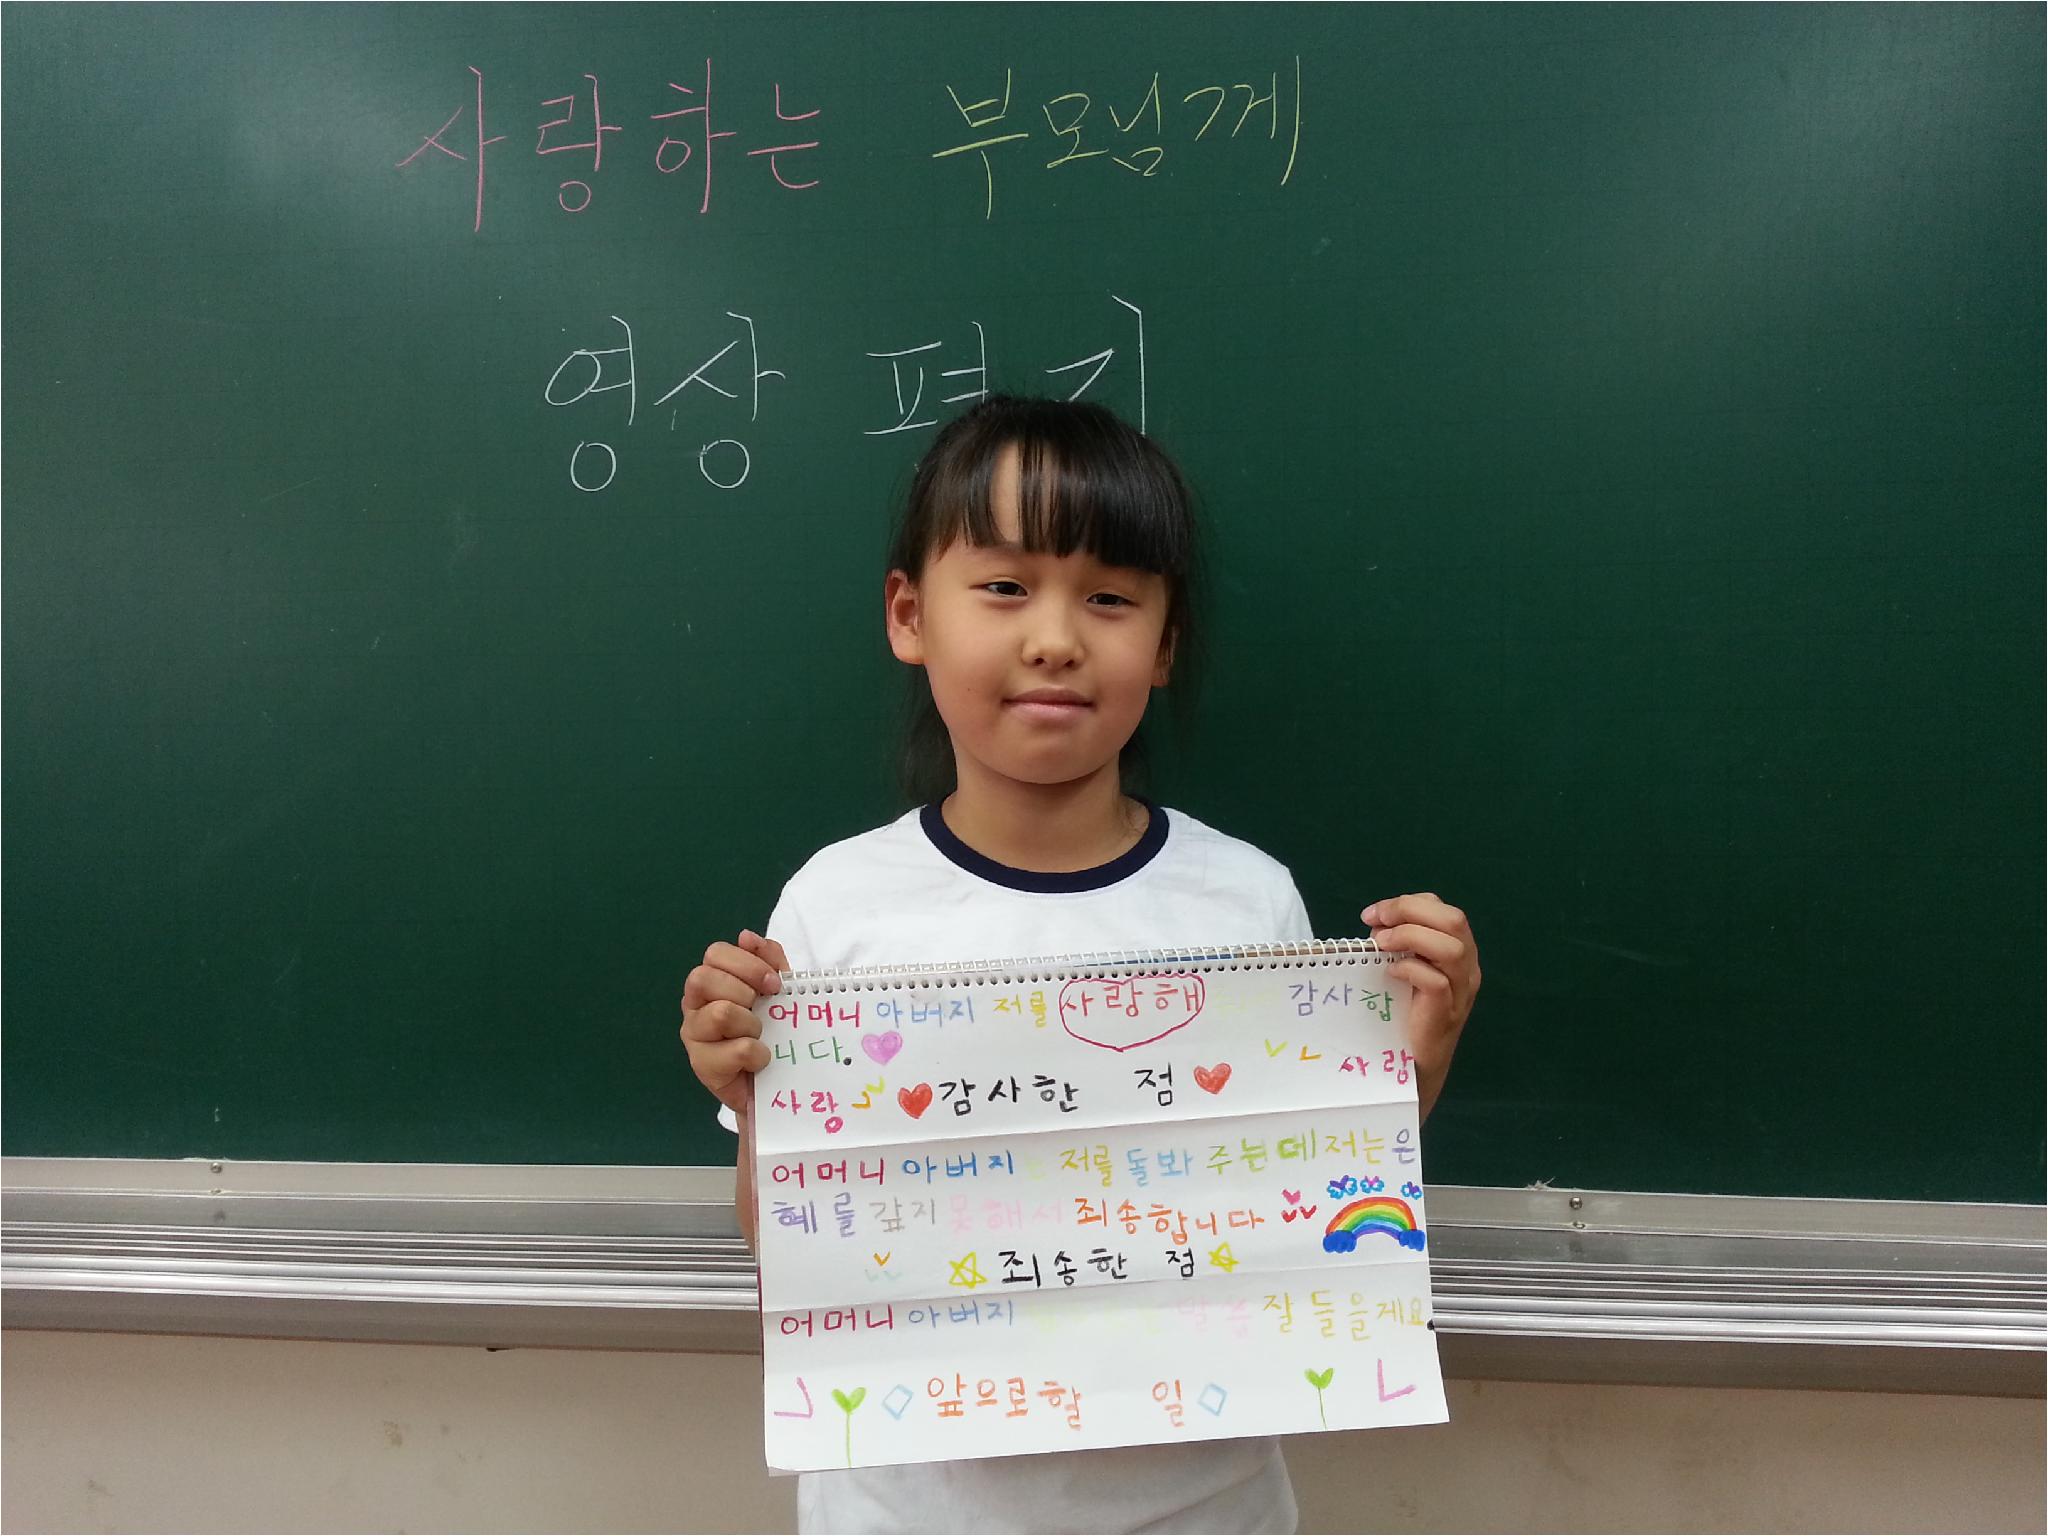 사랑하는 부모님께
영상 편지
어머니 아버지 저를 사랑해 감사합
니다.
사랑 감사한 점 사랑
어머니 아버지 저를 돌봐 주눈데 저는 은
혜를 갚지 못해서 죄송합니다
죄송한 점
어머니 아버지 말씀 잘 들을게요.
앞으로 할 일